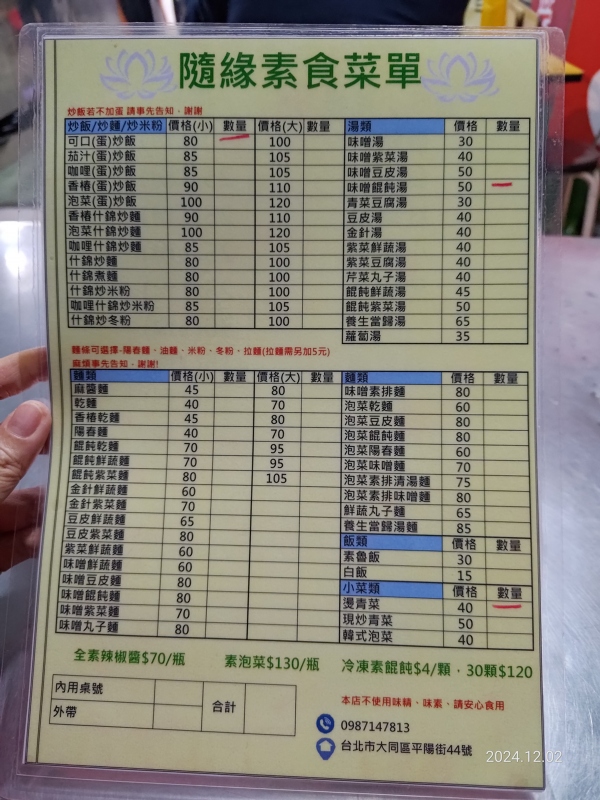 隨緣素食菜單
炒飯若不加蛋 請事先告知、謝謝
炒飯/炒麵/炒米粉 價格(小) 數量 價格(大) 數量
可口(蛋)炒飯 80 100
茄汁(蛋)炒飯 85 105
咖哩(蛋)炒飯 85 105
香椿(蛋)炒飯 90 110
泡菜(蛋)炒飯 100 120
香椿什錦炒麵 90 110
泡菜什錦炒麵 100 120
咖哩什錦炒麵 85 105
什錦炒麵 80 100
什錦煮麵 80 100
什錦炒米粉 80 100
咖哩什錦炒米粉 85 105
什錦炒冬粉 80 100
湯類 價格 數量
味噌湯 30
味噌紫菜湯 40
味噌豆皮湯 50
味噌餛飩湯 50
青菜豆腐湯 30
豆皮湯 40
金針湯 40
紫菜鮮蔬湯 40
紫菜豆腐湯 40
芹菜丸子湯 40
餛飩鮮蔬湯 45
餛飩紫菜湯 50
養生當歸湯 65
蘿蔔湯 35
麵條可選擇-陽春麵、油麵、米粉、冬粉、拉麵(拉麵需另加5元)
麻煩事先告知、謝謝!
麵類 價格(小) 數量 價格(大) 數量
麻醬麵 45 80
乾麵 40 70
香椿乾麵 45 80
陽春麵 40 70
餛飩乾麵 70 95
餛飩鮮蔬麵 70 95
餛飩紫菜麵 80 105
金針鮮蔬麵 60
金針紫菜麵 70
豆皮鮮蔬麵 65
豆皮紫菜麵 80
紫菜鮮蔬麵 60
味噌鮮蔬麵 60
味噌豆皮麵 80
味噌餛飩麵 80
味噌紫菜麵 70
味噌丸子麵 80
麵類 價格 數量
味噌素排麵 80
泡菜乾麵 60
泡菜豆皮麵 80
泡菜餛飩麵 80
泡菜陽春麵 60
泡菜味噌麵 70
泡菜素排清湯麵 75
泡菜素排味噌麵 80
鮮蔬丸子麵 65
養生當歸湯麵 85
飯類 價格 數量
素魯飯 30
白飯 15
小菜類 價格 數量
燙青菜 40
現炒青菜 50
韓式泡菜 40
全素辣椒醬$70/瓶 素泡菜$130/瓶 冷凍素餛飩$4/顆，30顆$120
內用桌號 合計
外帶
本店不使用味精、味素、請安心食用
0987147813
台北市大同區平陽街44號
2024.12.02